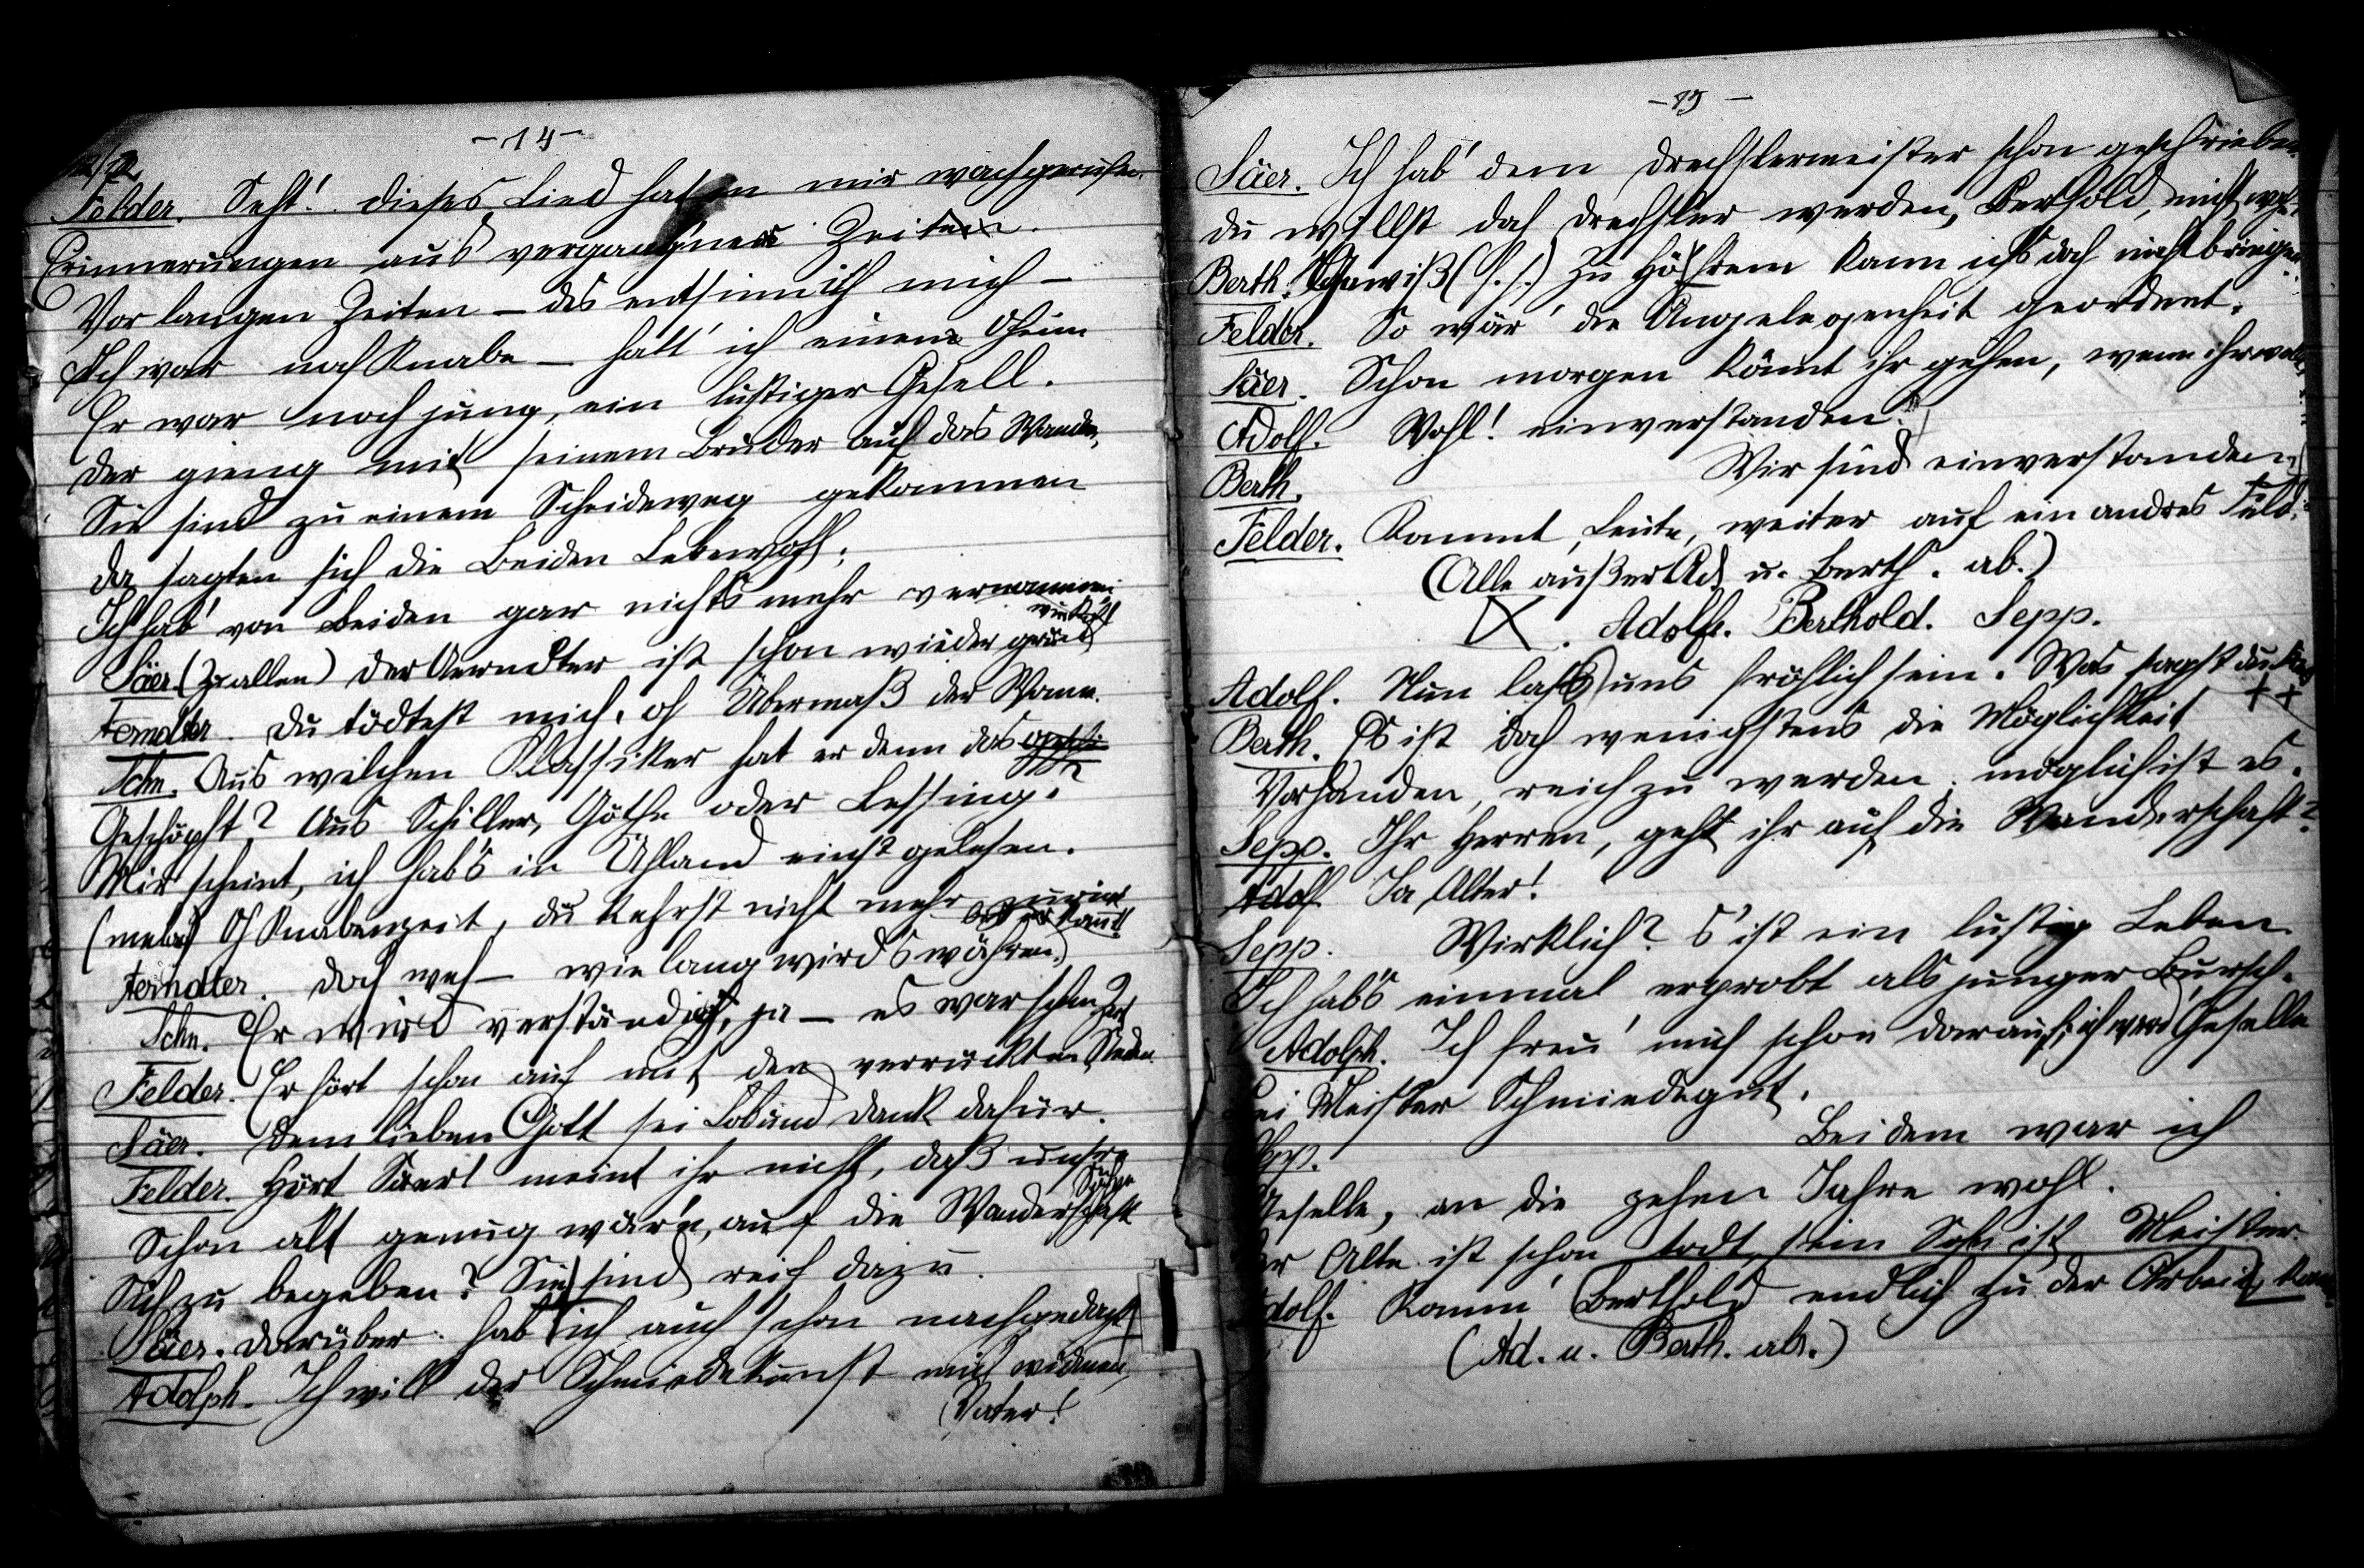 -14-
Felder. Seht! dieses Lied hat in mir wachgerufen
Erinnerungen aus vergang'ner Zeit
Vor langen Zeiten – des entsinn ich mich –
Ich war noch Knabe – hatt' ich einen Oheim
Er war noch jung, ein lustiger Gesell.
Der gieng mit seinem Bruder auf das Wandern,
Sie sind zu einem Scheideweg gekommen
Da sagten sich die Beiden Lebewohl;
Ich hab' von Beiden gar nichts mehr vernommen
Säer. (Zu allen) Der Aerndter ist schon wieder verrückt
Aerndter. Du tödtest mich, oh Übermaß der Wonne.
Schn. Aus welchen Klassiker hat er denn das
Geschöpft? Aus Schiller, Göthe oder Lessing?
Mir scheint, ich hab's in Uhland einst gelesen.
Oh Knabenzeit, du kehrst nicht mehr zurück
Aerndter. Doch weh – wie lang wird's währen
Schn. Er wird verständig, ja – es war schon Zeit
Felder. Er hört schon auf mit den verrückten Reden
Säer. Dem lieben Gott sei Lob und Dank dafür.
Felder. Hört Säer! meint ihr nicht, daß unsre Söhne
Schon alt genug wär'n, auf die Wanderschaft
Sich zu begeben? Sie sind reif dazu.
Säer. Darüber hab' ich auch schon nachgedacht
Adolph. Ich will der Schmiedekunst mich widmen,
Vater!
-15-
Säer. Ich hab' dem Drechslermeister schon geschrieben
Du willst doch Drechsler werden, Berthold, nicht wahr
Berth. Gewiß (f. s.) Zu Höhrem kann ichs doch nicht bringen.
Felder. So wär' die Angelegenheit geordnet.
Säer. Schon morgen könnt ihr gehen, wenn ihr wollt
Adolf. Wohl! einverstanden.
Berth. Wir sind einverstanden
Felder. Kommt, Leute, weiter auf ein andres Feld.
(Alle außer Ad. u. Berth. ab.)
IX. Adolf. Berthold. Sepp.
Adolf. Nun laß uns fröhlich sein. Was sagst du
Berth. Es ist doch wenigstens die Möglichkeit ++
Vorhanden, reich zu werden. möglich ist es.
Sepp. Ihr Herren, geht ihr auf die Wanderschaft?
Adolf Ja Alter!
Sepp. Wirklich? S'ist ein lustig Leben
Ich hab's einmal erprobt als junger Bursch.
Adolph. Ich freu' mich schon darauf; ich werd Geselle
Bei Meister Schmiedegut.
Sepp. Bei dem war ich
Geselle, an die zehen Jahre wohl.
Der Alte ist schon todt, sein Sohn ist Meister.
Adolf. Komm' Berthold endlich zu der Arbeit, komm.
(Ad. u. Berth. ab.)